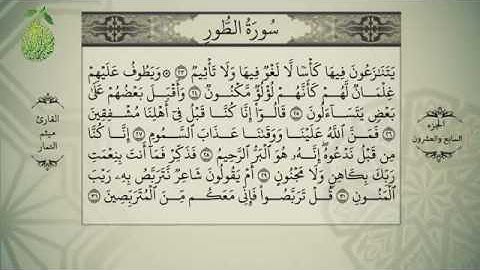 سُورَةُ الطُّورِ
يَتَنَٰزَعُونَ فِيهَا كَأْسًا لَّا لَغْوٌ فِيهَا وَلَا تَأْثِيمٌ ٢٣ ۞ وَيَطُوفُ عَلَيْهِمْ
غِلْمَانٌ لَّهُمْ كَأَنَّهُمْ لُؤْلُؤٌ مَّكْنُونٌ ٢٤ وَأَقْبَلَ بَعْضُهُمْ عَلَىٰ
بَعْضٍ يَتَسَآءَلُونَ ٢٥ قَالُوٓا۟ إِنَّا كُنَّا قَبْلُ فِىٓ أَهْلِنَا مُشْفِقِينَ
٢٦ فَمَنَّ ٱللَّهُ عَلَيْنَا وَوَقَىٰنَا عَذَابَ ٱلسَّمُومِ ٢٧ إِنَّا كُنَّا
مِن قَبْلُ نَدْعُوهُ إِنَّهُۥ هُوَ ٱلْبَرُّ ٱلرَّحِيمُ ٢٨ فَذَكِّرْ فَمَآ أَنتَ بِنِعْمَتِ
رَبِّكَ بِكَاهِنٍ وَلَا مَجْنُونٍ ٢٩ أَمْ يَقُولُونَ شَاعِرٌ نَّتَرَبَّصُ بِهِۦ رَيْبَ
ٱلْمَنُونِ ٣٠ قُلْ تَرَبَّصُوا۟ فَإِنِّى مَعَكُم مِّنَ ٱلْمُتَرَبِّصِينَ ٣١
الجزء
السابع والعشرون
القارئ
ميثم
التمار